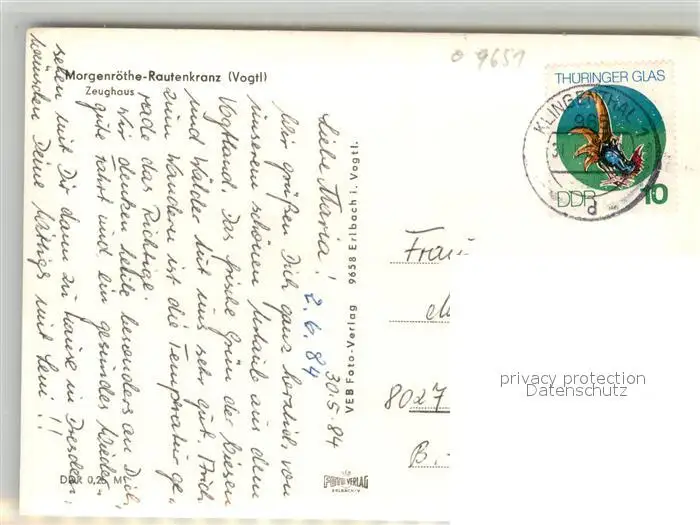 Morgenröthe-Rautenkranz (Vogtl)
Zeughaus
9651
THÜRINGER GLAS
KLINGENTHAL
DDR
10
30.5.84
Liebe Maria! 2.6.84
Wir grüßen Dich ganz herzlich von
unserem schönen Urlaub aus dem
Vogtland. Das frische Grün der Wiesen
und Wälder tut uns sehr gut. Auch
zum Wandern ist die Temperatur ge-
rade das Richtige.
Wir denken heute besonders an Dich,
gute Fahrt und ein gesundes Wieder-
sehen mit Dir dann zu Hause in Dresden,
wünschen Deine
VEB Foto-Verlag 9658 Erlbach i. Vogtl.
Frau
8027
B.
DDR 0,20 M
FOTO VERLAG
ERLBACH/V
privacy protection
Datenschutz